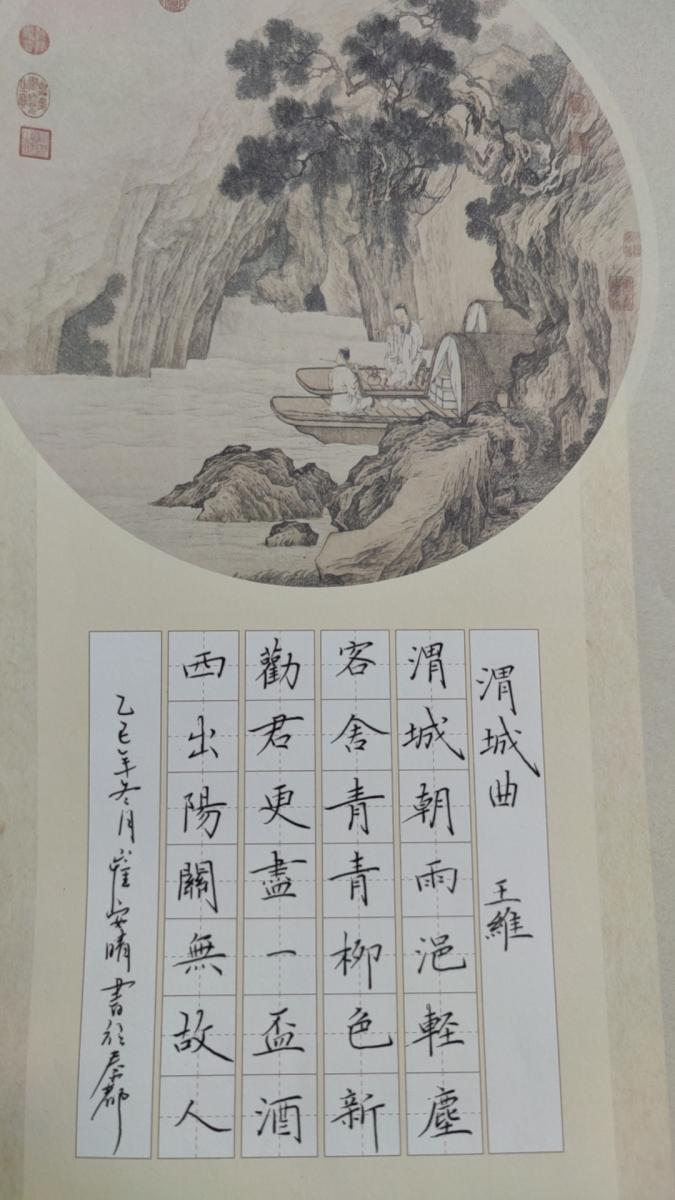 渭城曲 王維
渭城朝雨浥軽塵
客舍青青柳色新
勸君更盡一盃酒
西出陽關無故人
乙巳年冬月崔安晴書於秦都